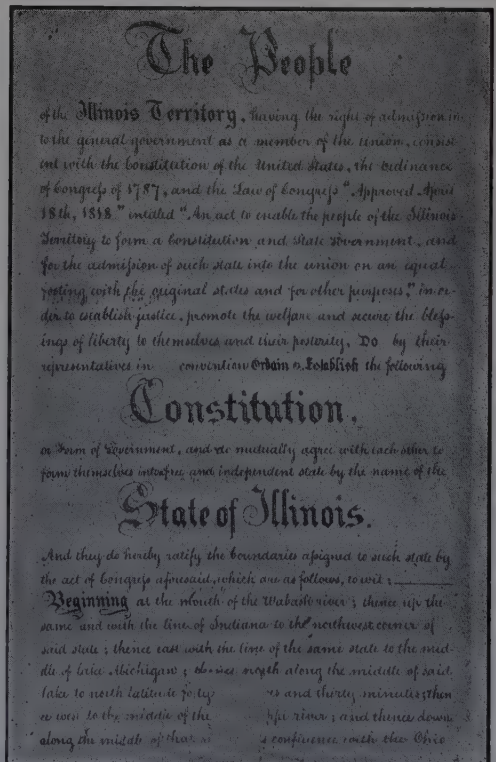 The People
of the Illinois Territory, having the right of admission in
to the general government as a member of the union, consist
ent with the Constitution of the United States, the ordinance
of Congress of 1787, and the Law of Congress "Approved April
18th, 1818." intitled "An act to enable the people of the Illinois
Territory to form a Constitution and State Government, and
for the admission of such state into the union on an equal
footing with the original states and for other purposes," in or-
der to establish justice, promote the welfare and secure the bless-
ings of liberty to themselves and their posterity, Do by their
representatives in convention Ordain & Establish the following
Constitution,
or Form of Government, and do mutually agree with each other to
form themselves into a free and independent state by the name of the
State of Illinois.
And they do hereby ratify the boundaries assigned to such state by
the act of Congress aforesaid, which are as follows, to wit:
Beginning at the mouth of the Wabash river; thence up the
same and with the line of Indiana to the northwest corner of
said state; thence east with the line of the same state to the mid-
dle of lake Michigan; thence north along the middle of said
lake to north latitude forty es and thirty minutes; then
ce west to the middle of the ippi river; and thence down
along the middle of that confluence with the Ohio